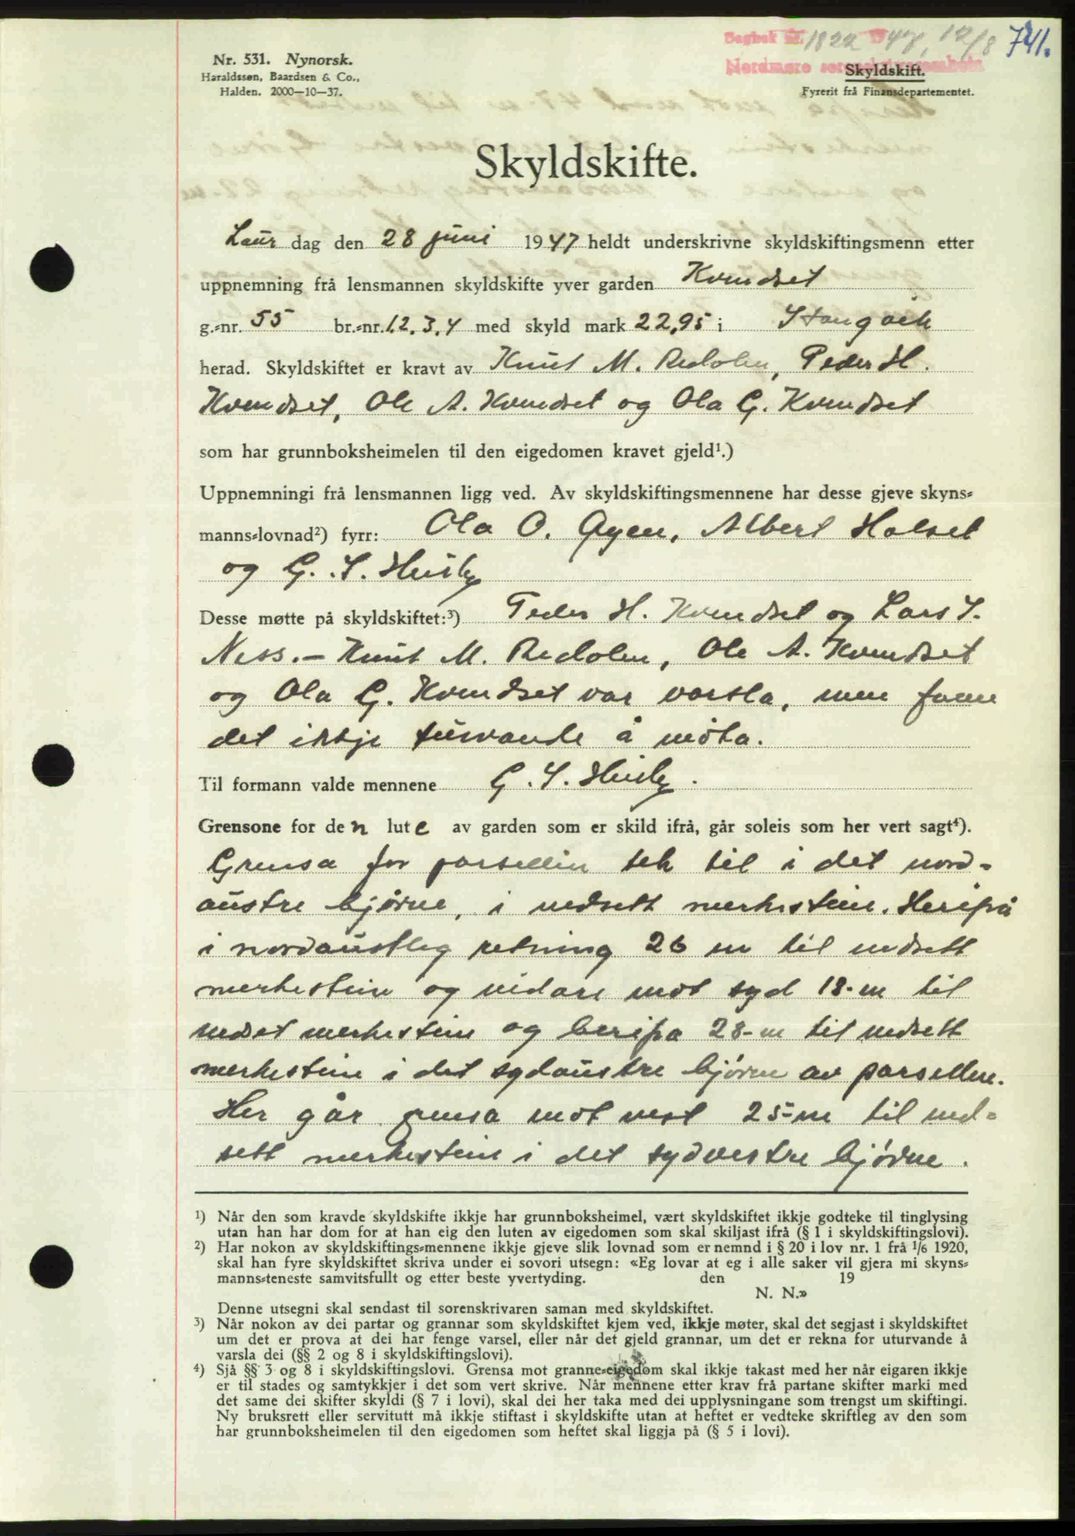 Nr. 531. Nynorsk.
Haraldssen, Baardsen & Co.,
Halden. 2000—10—37.
Dagbok nr. 1822 1947, 12/8 741.
Nordmøre sorenskriverembete
Skyldskift.
Fyrerit frå Finansdepartementet.
Skyldskifte.
Laur dag den 28 juni 1947 heldt underskrivne skyldskiftingsmenn etter
uppnemning frå lensmannen skyldskifte yver garden Kvendset
g.-nr. 55 br.-nr. 1,2,3,4 med skyld mark 22,95 i Stangvik
herad. Skyldskiftet er kravt av Knut M. Redalen, Peder H.
Kvendset, Ole A. Kvendset og Ola G. Kvendset
som har grunnboksheimelen til den eigedomen kravet gjeld¹.)
Uppnemningi frå lensmannen ligg ved. Av skyldskiftingsmennene har desse gjeve skyns-
manns-lovnad²) fyrr: Ola O. Øyen, Albert Holset
og G. S. Husby
Desse møtte på skyldskiftet:³) Peder H. Kvendset og Lars S.
Ness. — Knut M. Redalen, Ole A. Kvendset
og Ola G. Kvendset var varsla, men fann
det ikkje turvande å møta.
Til formann valde mennene G. S. Husby.
Grensone for den lute av garden som er skild ifrå, går soleis som her vert sagt⁴).
Grensa for parsellen tek til i det nord-
austre hjørne, i nedsett merkestein. Herifrå
i nordaustleg retning 26 m til nedsett
merkestein og vidare mot syd 18-m til
nedset merkestein og herifra 28-m til nedsett
merkestein i det sydaustre hjørne av parsellen.
Her går grensa mot vest 25-m til ned-
sett merkestein i det sydvestre hjørne.
¹) Når den som kravde skyldskifte ikkje har grunnboksheimel, vært skyldskiftet ikkje godteke til tinglysing
utan han har dom for at han eig den luten av eigedomen som skal skiljast ifrå (§ 1 i skyldskiftingslovi).
²) Har nokon av skyldskiftings-mennene ikkje gjeve slik lovnad som er nemnd i § 20 i lov nr. 1 frå 1/6 1920,
skal han fyre skyldskiftet skriva under ei sovori utsegn: «Eg lovar at eg i alle saker vil gjera mi skyns-
manns-teneste samvitsfullt og etter beste yvertyding. den 19
N. N.»
Denne utsegni skal sendast til sorenskrivaren saman med skyldskiftet.
³) Når nokon av dei partar og grannar som skyldskiftet kjem ved, ikkje møter, skal det segjast i skyldskiftet
um det er prova at dei har fenge varsel, eller når det gjeld grannar, um det er rekna for uturvande å
varsla dei (§§ 2 og 8 i skyldskiftingslovi).
⁴) Sjå §§ 3 og 8 i skyldskiftingslovi. Grensa mot granne-eigedom skal ikkje takast med her når eigaren ikkje
er til stades og samtykkjer i det som vert skrive. Når mennene etter krav frå partane skifter marki med
det same dei skifter skyldi (§ 7 i lovi), skal dei her taka med dei upplysningane som trengst um skiftingi.
Ny bruksrett eller servitutt må ikkje stiftast i skyldskifte utan at heftet er vedteke skriftleg av den som
har grunnboksheimelen til den eigedomen som heftet skal liggja på (§ 5 i lovi).